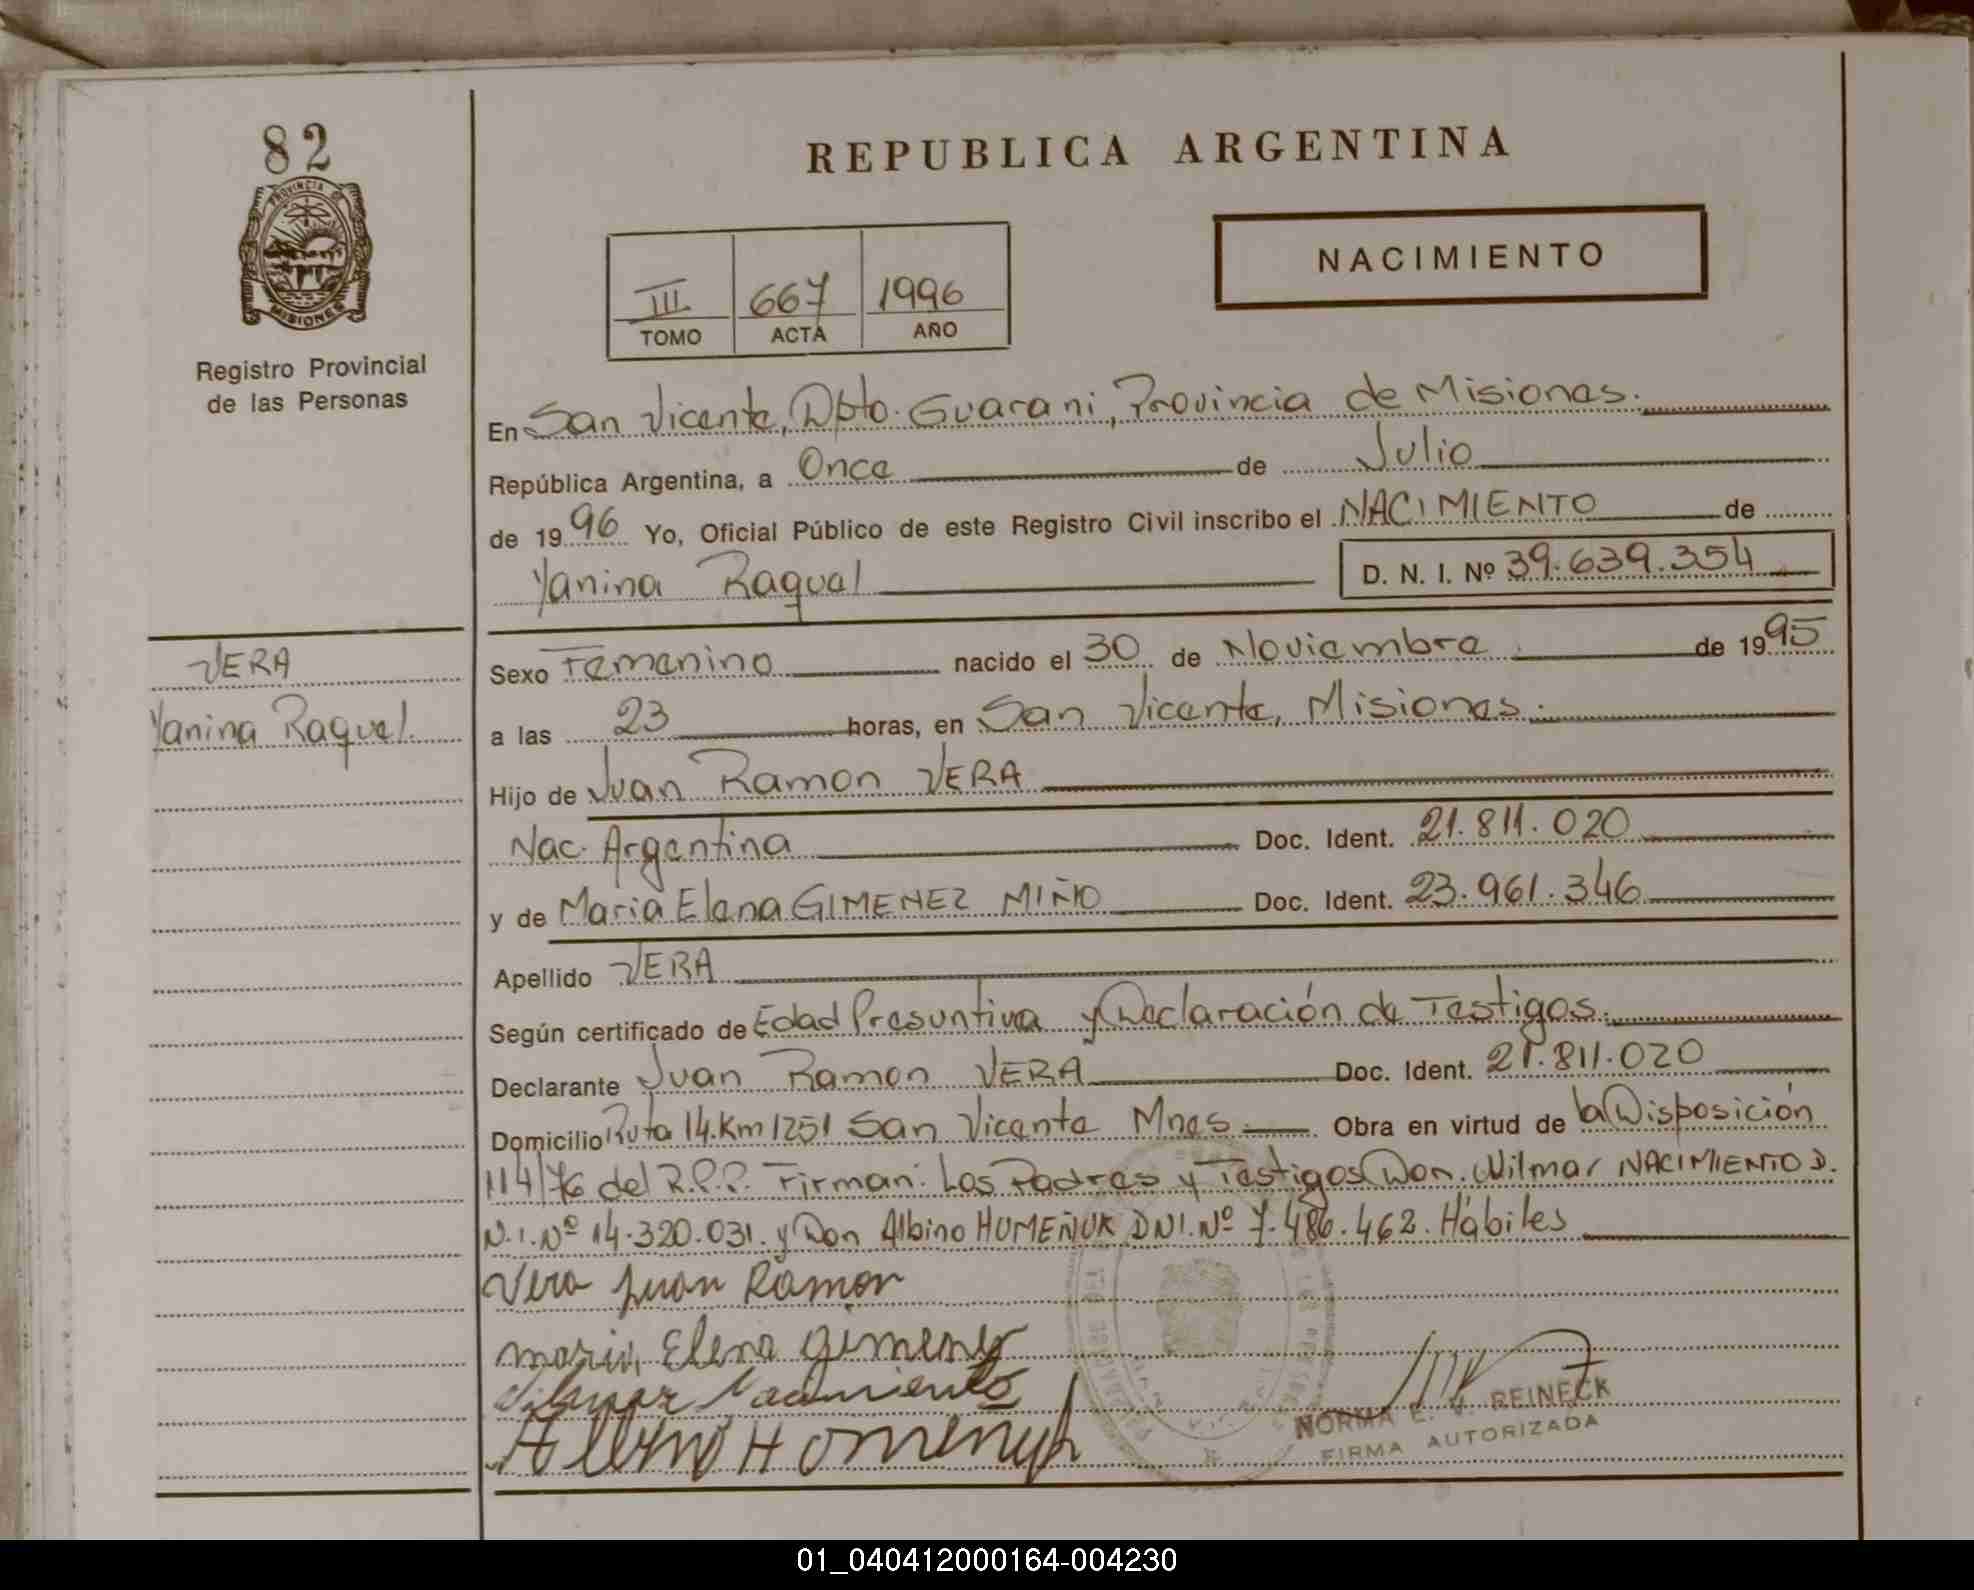 82
PROVINCIA DE
MISIONES
Registro Provincial
de las Personas
VERA
Yanina Raquel.
REPUBLICA ARGENTINA
NACIMIENTO
III 667 1996
TOMO ACTA AÑO
En San Vicente, Dpto. Guarani, Provincia de Misiones.
República Argentina, a Once de Julio
de 1996 Yo, Oficial Público de este Registro Civil inscribo el NACIMIENTO de
Yanina Raquel D. N. I. Nº 39.639.354
Sexo Femenino nacido el 30 de Noviembre de 1995
a las 23 horas, en San Vicente, Misiones.
Hijo de Juan Ramon VERA
Nac. Argentina Doc. Ident. 21.811.020
y de Maria Elena GIMENEZ MIÑO Doc. Ident. 23.961.346
Apellido VERA
Según certificado de Edad Presuntiva y Declaración de Testigos.
Declarante Juan Ramon VERA Doc. Ident. 21.811.020
Domicilio Ruta 14.Km 1251 San Vicente Mnes Obra en virtud de la Disposición
114/76 del R.P.P. Firman: Los Padres y Testigos Don. Wilmar NACIMIENTO D.
N.I. Nº 14.320.031. y Don Albino HUMEÑUK DNI. Nº 7.486.462. Hábiles
Vera Juan Ramon
maria Elena Gimenez
Wilmar Nacimiento
Albino Homenyk
NORMA E. V. REINECK
FIRMA AUTORIZADA
01_040412000164-004230